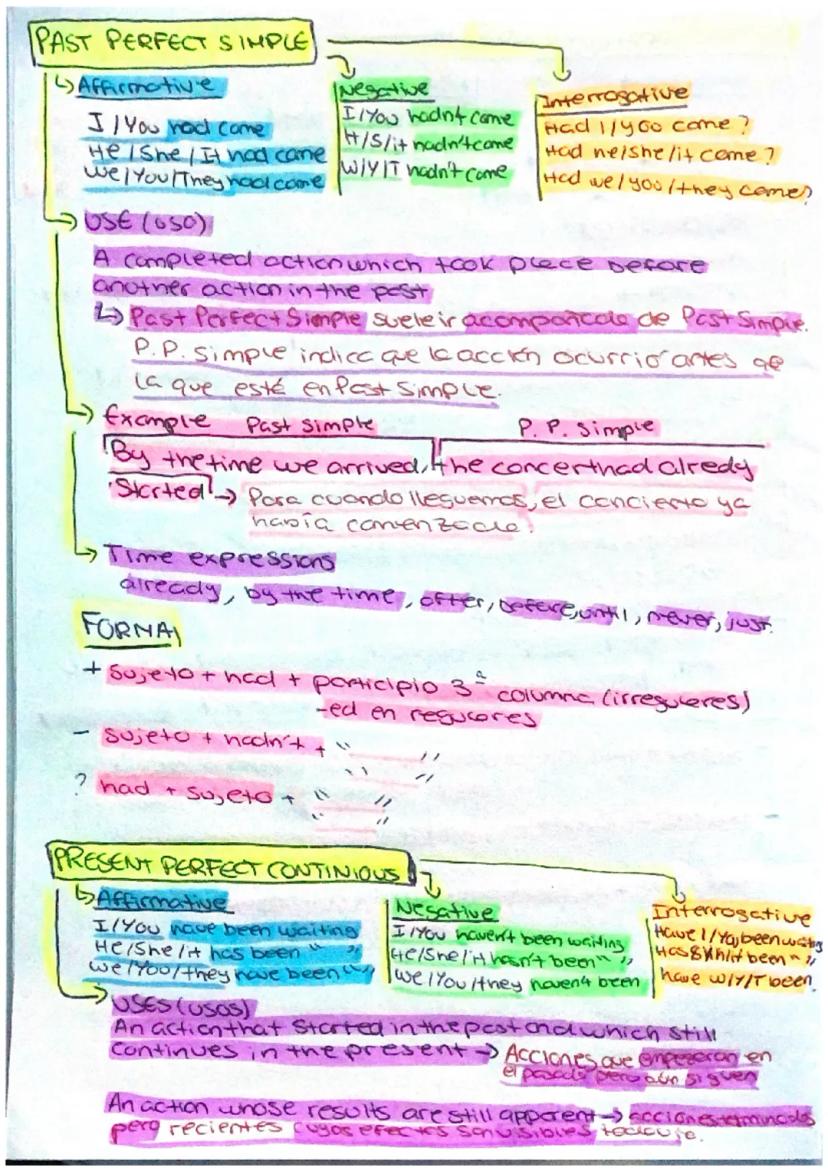 PAST PERFECT SIMPLE
Affirmative
I/You had come
He/She/It had come
We/You/They had come
Negative
I/You hadn't come
H/S/it hadn't come
W/Y/T hadn't come
Interrogative
Had I/you come?
Had he/she/it come?
Had we/you/they come?
USE (USO)
A completed action which took place before
another action in the past
Past Perfect Simple suele ir acompañado de Past Simple.
P.P. Simple indica que la acción ocurrió antes de
la que esté en Past Simple.
Example Past Simple P.P. Simple
By the time we arrived, the concert had alredy
Started → Para cuando lleguemos, el concierto ya
había comenzado.
Time expressions
already, by the time, after, before, until, never, just.
FORMA
+ Sujeto + had + participio 3ª columna (irregulares)
-ed en regulares
- Sujeto + hadn't + " "
? had + sujeto + " "
PRESENT PERFECT CONTINIOUS
Affirmative
I/You have been waiting
He/She/it has been " "
We/You/they have been " "
Negative
I/You haven't been waiting
He/She/it hasn't been " "
We/You/they haven't been
Interrogative
Have I/You been waiting
Has S/h/it been " "
have W/Y/T been
USES (USOS)
An action that Started in the past and which still
continues in the present → Acciones que empezaron en
el pasado pero aún siguen
An action whose results are still apparent → acciones terminadas
pero recientes cuyos efectos son visibles todavía.